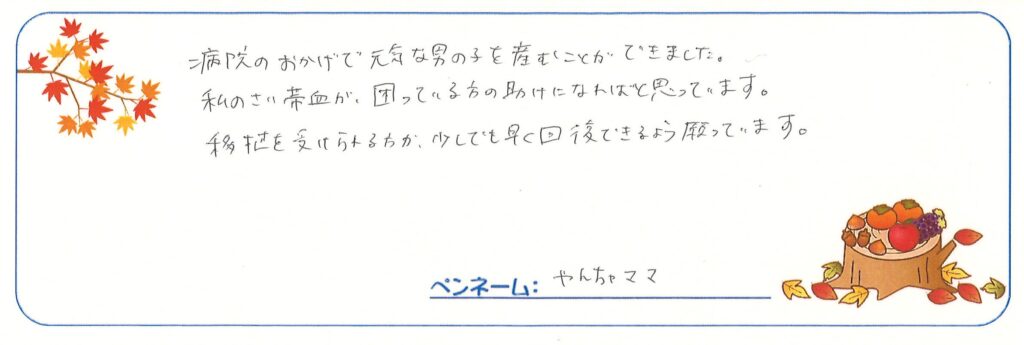 病院のおかげで元気な男の子を産むことができました。
私のさい帯血が、困っている方の助けになればと思っています。
移植を受けられる方が、少しでも早く回後できるよう願っています。
ペンネーム: やんちゃママ